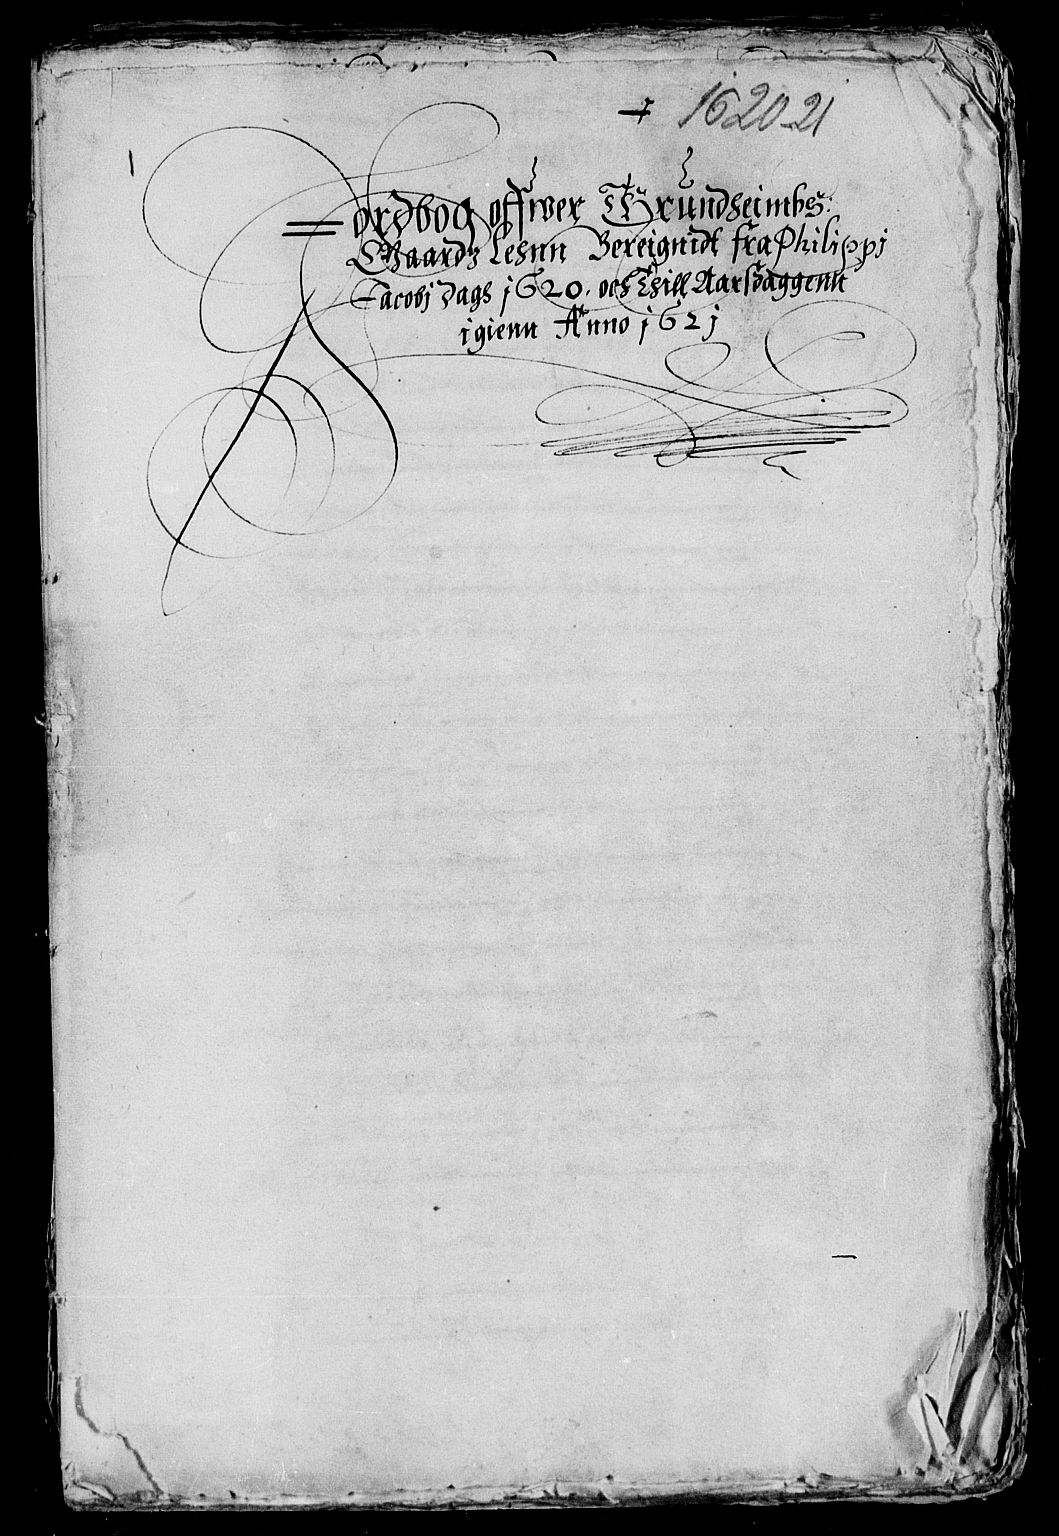 1620-21
Jordbog offwer Trundheimbs
Gaards Lehnn Bereignidt fra Philippi
Jacobj dags j620. och Thill Aarsdaggenn
igienn Anno j62j